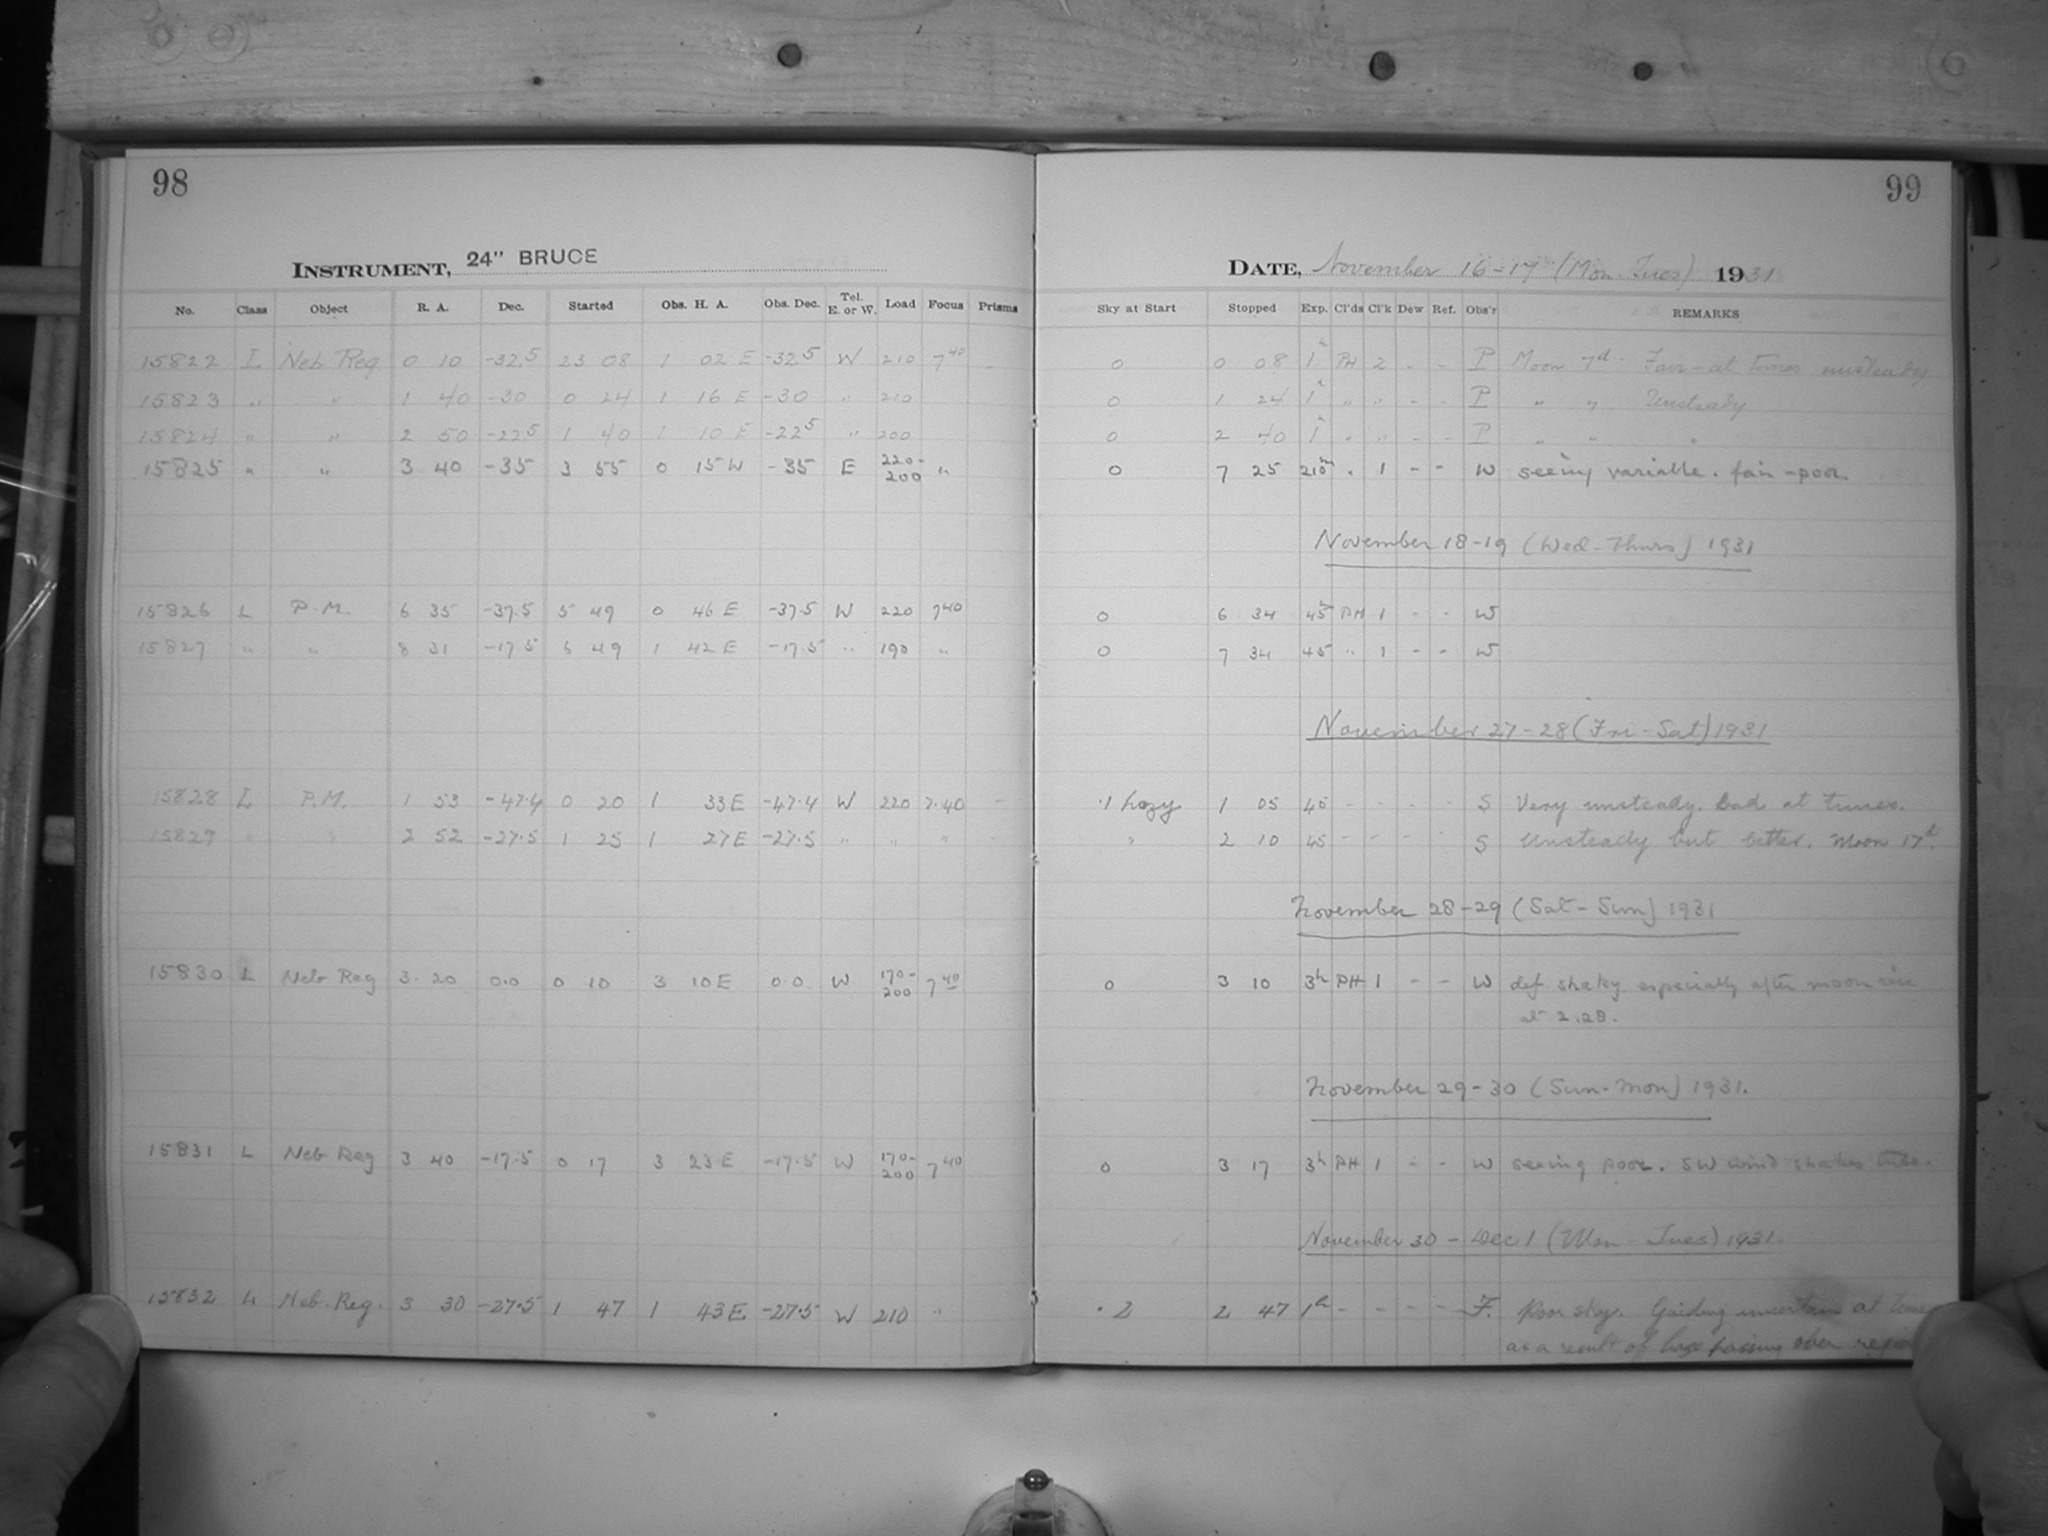 98
99
INSTRUMENT, 24" BRUCE
DATE, November 16-17 (Mon-Tues) 1931
No. Class Object R. A. Dec. Started Obs. H. A. Obs. Dec. Tel. E. or W. Load Focus Prisms Sky at Start Stopped Exp. Cl'ds Cl'k Dew Ref. Obs'r REMARKS
15822 L Neb Reg 0 10 -32.5 23 08 1 02 E -32.5 W 210 7 40 - 0 0 08 1h PH 2 - - P Moon 7d. Fair - at times unsteady
15823 " " 1 40 -30 0 24 1 16 E -30 " 210 0 1 24 1h " " - - P " " Unsteady
15824 " " 2 50 -22.5 1 40 1 10 E -22.5 " 200 0 2 40 1h " " - - P " " "
15825 " " 3 40 -35 3 55 0 15 W -35 E 220-200 " 0 7 25 210m " 1 - - W seeing variable. fair-poor.
November 18-19 (Wed-Thurs) 1931
15826 L P.M. 6 35 -37.5 5 49 0 46 E -37.5 W 220 7 40 0 6 34 45m PH 1 - - W
15827 " " 8 31 -17.5 6 49 1 42 E -17.5 " 190 " 0 7 34 45 " 1 - - W
November 27-28 (Fri-Sat) 1931
15828 L P.M. 1 53 -47.4 0 20 1 33 E -47.4 W 220 7.40 - .1 hazy 1 05 45 - - - - S Very unsteady. Bad at times.
15829 " " 2 52 -27.5 1 25 1 27 E -27.5 " " " - " 2 10 45 - - - - S Unsteady but better. Moon 17d.
November 28-29 (Sat-Sun) 1931
15830 L Neb Reg 3 20 0.0 0 10 3 10 E 0.0 W 170-200 7 40 0 3 10 3h PH 1 - - W def. shaky especially after moon rise
at 2.28.
November 29-30 (Sun-Mon) 1931.
15831 L Neb Reg 3 40 -17.5 0 17 3 23 E -17.5 W 170-200 7 40 0 3 17 3h PH 1 - - W seeing poor. SW wind shakes tube.
November 30 - Dec 1 (Mon-Tues) 1931.
15832 L Neb. Reg. 3 30 -27.5 1 47 1 43 E -27.5 W 210 " .2 2 47 1h - - - - F. Poor sky. Guiding uncertain at times
as a result of haze passing over region